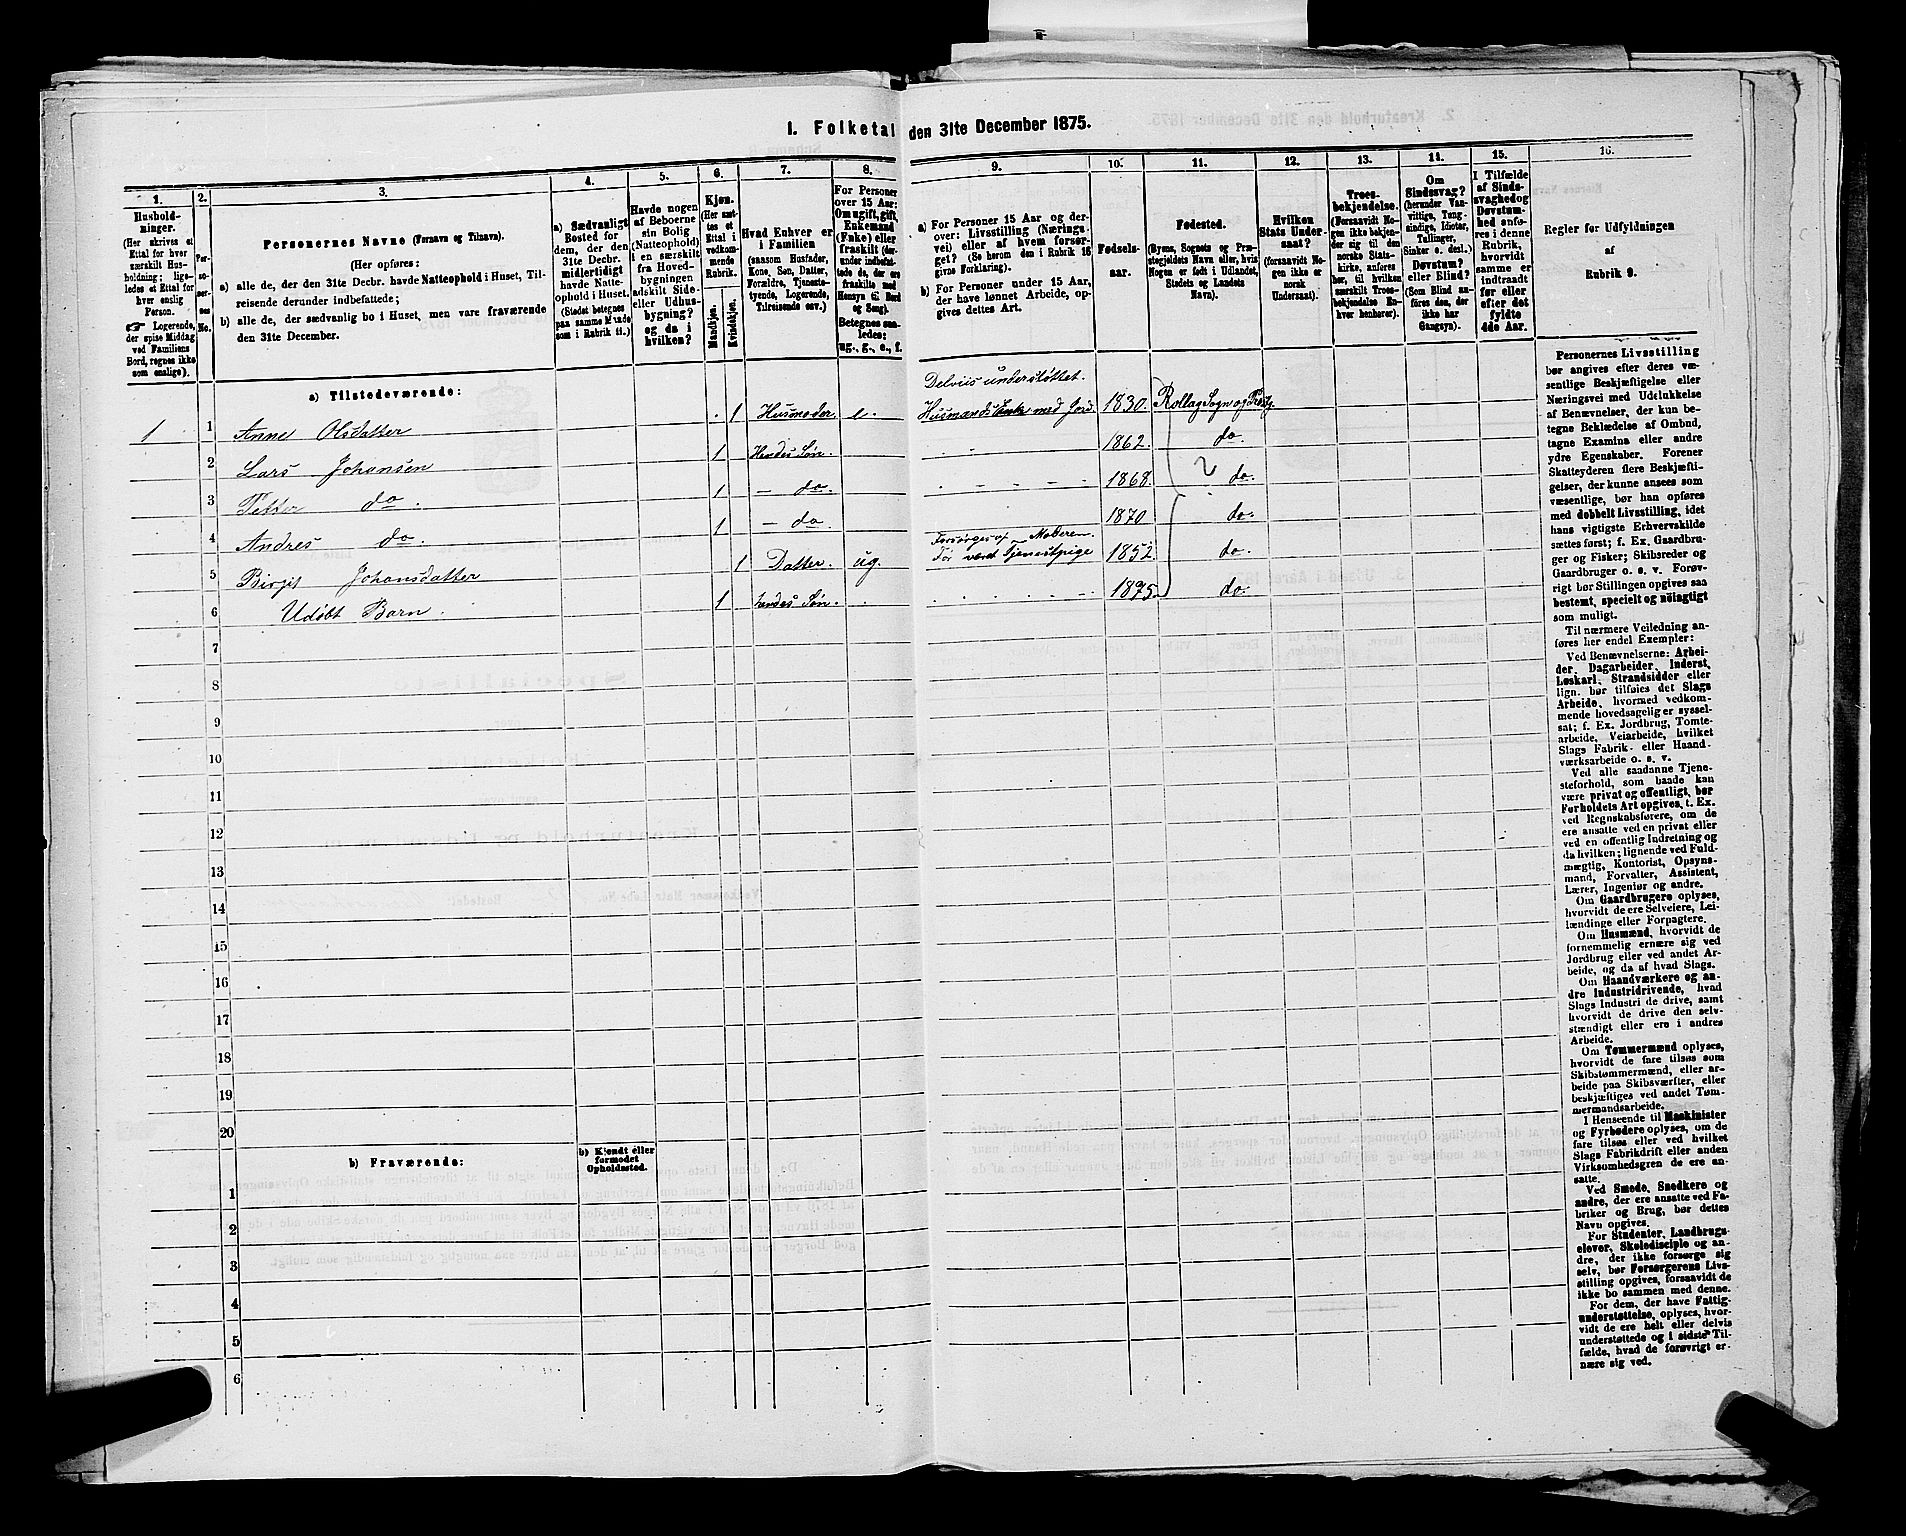 I. Folketal den 31te December 1875.
1.
2.
3.
4.
5.
6.
7.
8.
9.
10.
11.
12.
13.
14.
15.
16.
Husholdninger.
(Her skrives et Ettal for hver særskilt Husholdning; ligeledes et Ettal for hver enslig Person.
☞ Logerende, der spise Middag ved Familiens Bord, regnes ikke som enslige).
Personernes No.
Personernes Navne (Fornavn og Tilnavn).
(Her opføres:
a) alle de, der den 31te Decbr. havde Natteophold i Huset, Tilreisende derunder indbefattede;
b) alle de, der sædvanlig bo i Huset, men vare fraværende den 31te December.
a) Sædvanligt Bosted for dem, der den 31te Decbr. midlertidigt havde Natteophold i Huset.
(Stedet betegnes paa samme Maade som i Rubrik 11.)
Havde nogen af Beboerne sin Bolig (Natteophold) i en særskilt fra Hovedbygningen adskilt Side- eller Udhusbygning? og da i hvilken?
Kjøn.
(Her sættes et Ettal i vedkommende Rubrik.
Mandkjøn.
Kvindekjøn.
Hvad Enhver er i Familien
(saasom Husfader, Kone, Søn, Datter, Forældre, Tjenestetyende, Logerende, Tilreisende osv.)
For Personer over 15 Aar: Om ugift, gift, Enkemand (Enke) eller fraskilt (derunder indbefattede de, der ere fraskilte med Hensyn til Bord og Seng).
Betegnes saaledes: ug., g., e., f.
a) For Personer 15 Aar og derover: Livsstilling (Næringsvei) eller af hvem forsørget? (Se herom den i Rubrik 16 givne Forklaring).
b) For Personer under 15 Aar, der have lønnet Arbeide, opgives dettes Art.
Fødselsaar.
Fødested.
(Byens, Sognets og Præstegjeldets Navn eller, hvis Nogen er født i Udlandet, Stedets og Landets Navn).
Hvilken Stats Undersaat?
(forsaavidt Nogen ikke er norsk Undersaat).
Troesbekjendelse.
(Forsaavidt Nogen ikke bekjender sig til den norske Statskirke, anføres her, til hvilken særskilt Troesbekjendelse Enhver henhører).
Om Sindssvag? (herunder Vanvittige, Tungsindige, Idioter, Tullinger, Sinker o. desl.) Døvstum? eller Blind? (Som Blind anføres den, der ikke har Gangsyn).
I Tilfælde af Sindssvaghed og Døvstumhed anføres i denne Rubrik, hvorvidt samme er indtraadt før eller efter det fyldte 4de Aar.
Regler for Udfyldningen
af
Rubrik 9.
a) Tilstedeværende:
Delviis understøttet.
1 1 Anne Olsdatter 1 Husmoder e. Husmands Enke med Jord. 1830. Rollag Sogn og Præstg.
2 Lars Johansen 1 Hendes Søn. 1862. do
3 Petter do. 1 - do. 1868. do.
4 Andres do. 1 - do 1870 do.
Forsørges af Moderen.
5 Birgit Johansdatter 1 Datter. ug. Før været Tjenestpige 1852. do.
6 Udøbt Barn. 1 hendes Søn. 1875. do.
7
8
9
10
11
12
13
14
15
16
17
18
19
20
b) Fraværende:
b) Kjendt eller formodet Opholdssted.
1
2
3
4
5
6
Personernes Livsstilling
bør angives efter deres væsentlige
Beskjæftigelse eller
Næringsvei med Udelukkelse
af Benævnelser, der kun betegne
Beklædelse af Ombud,
tagne Examina eller andre
ydre Egenskaber. Forener
Skatteyderen flere Beskjæftigelser,
der kunne ansees som
væsentlige, bør han opføres
med dobbelt Livsstilling, idet
hans vigtigste Erhvervskilde
sættes først; f. Ex. Gaardbruger
og Fisker; Skibsreder og
Gaardbruger o. s. v. Forøvrigt
bør Stillingen opgives saa
bestemt, specielt og nøiagtigt
som muligt.
Til nærmere Veiledning anføres
her endel Exempler:
Ved Benævnelserne: Arbeider,
Dagarbeider, Inderst,
Løskarl, Strandsidder eller
lign. bør tilføies det Slags
Arbeide, hvormed vedkommende
hovedsagelig er sysselsat;
f. Ex. Jordbrug, Tomtearbeide,
Veiarbeide, hvilket
Slags Fabrik- eller Haandværksarbeide
o. s. v.
Ved alle saadanne Tjenesteforhold,
som baade kan
være privat og offentligt, bør
Forholdets Art opgives, t. Ex.
ved Regnskabsførere, om de
ere ansatte ved en privat eller
ved en offentlig Indretning og
da hvilken; lignende ved Fuldmægtig,
Kontorist, Opsynsmand,
Forvalter, Assistent,
Lærer, Ingeniør og andre.
Om Gaardbrugere oplyses,
hvorvidt de ere Selveiere, Leilændinge
eller Forpagtere.
Om Husmænd, hvorvidt de
fornemmelig ernære sig ved
Jordbrug eller ved andet Arbeide,
og da af hvad Slags.
Om Haandværkere og andre
Industridrivende, hvad
Slags Industri de drive, samt
hvorvidt de drive den selvstændigt
eller ere i andres
Arbeide.
Om Tømmermænd oplyses,
hvorvidt de fare tilsøs som
Skibstømmermænd, eller arbeide
paa Skibsværfter, eller
beskjæftiges ved andet Tømmermandsarbeide.
I Henseende til Maskinister
og Fyrbødere oplyses, om de
fare tilsøs eller ved hvilket
Slags Fabrikdrift eller anden
Virksomhedsgren de ere ansatte.
Ved Smede, Snedkere og
andre, der ere ansatte ved Fabriker
og Brug, bør dettes
Navn opgives.
For Studenter, Landbrugselever,
Skoledisciple og andre,
der ikke forsørge sig
selv, bør Forsørgerens Livsstilling
opgives, forsaavidt de
ikke bo sammen med denne.
For dem, der have Fattigunderstøttelse,
oplyses, hvorvidt
de ere helt eller delvis
understøttede og i sidste Tilfælde,
hvad de forøvrigt ernære
sig ved.